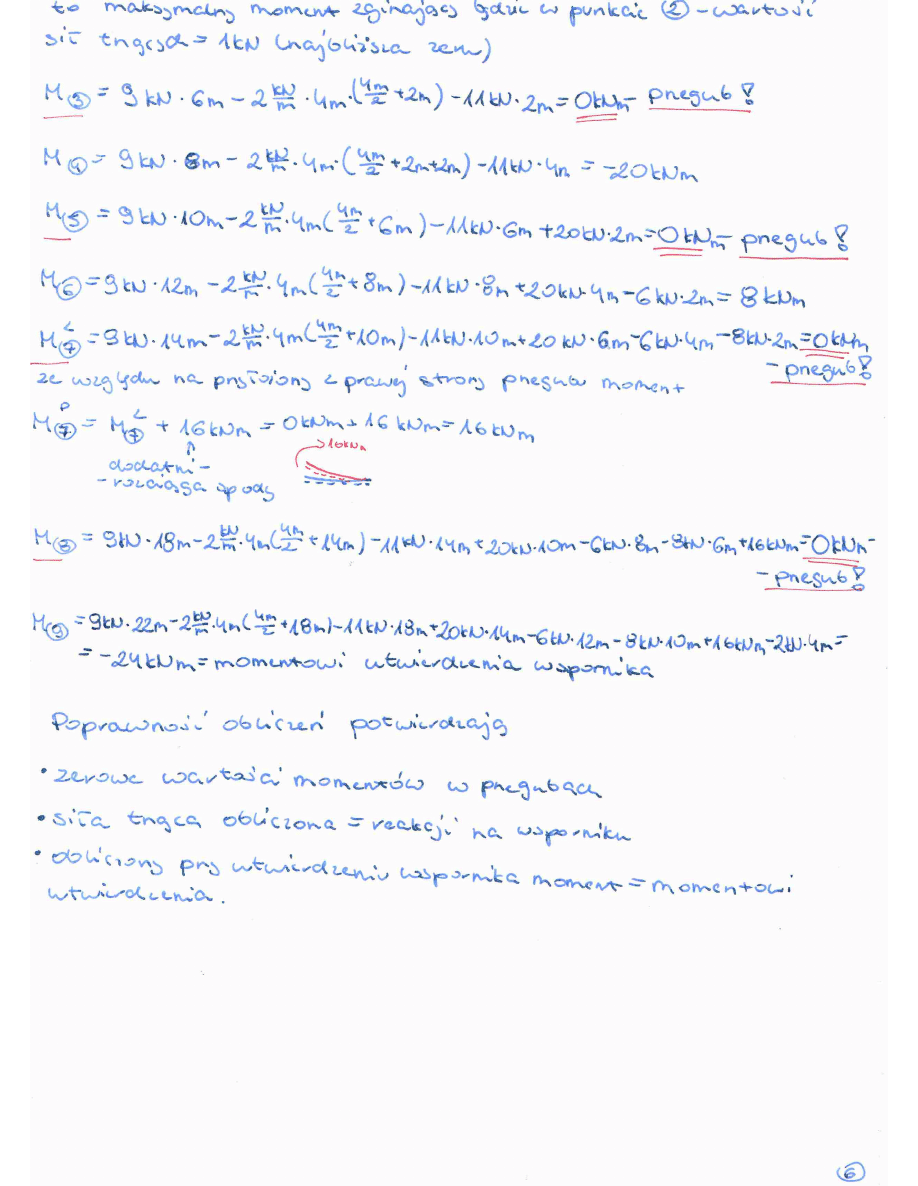 to maksymalny moment zginający będzie w punkcie ② - wartość
sił tnących = 1kN (najbliższa zeru)
M③ = 9kN·6m - 2 kN/m·4m·(4m/2+2m) - 11kN·2m = 0kNm - przegub!
M④ = 9kN·8m - 2 kN/m·4m·(4m/2+2m+2m) - 11kN·4m = -20kNm
M⑤ = 9kN·10m - 2 kN/m·4m(4m/2+6m) - 11kN·6m + 20kN·2m = 0kNm - przegub!
M⑥ = 9kN·12m - 2 kN/m·4m(4m/2+8m) - 11kN·8m + 20kN·4m - 6kN·2m = 8kNm
M⑦ᴸ = 9kN·14m - 2 kN/m·4m(4m/2+10m) - 11kN·10m + 20kN·6m - 6kN·4m - 8kN·2m = 0kNm
- przegub!
ze względu na przyłożony z prawej strony przegubu moment
M⑦ᴾ = M⑦ᴸ + 16kNm = 0kNm + 16kNm = 16kNm
16kNm
dodatni -
- rozciąga spody
M⑧ = 9kN·18m - 2 kN/m·4m(4m/2+14m) - 11kN·14m + 20kN·10m - 6kN·8m - 8kN·6m + 16kNm = 0kNm -
- przegub!
M⑨ = 9kN·22m - 2 kN/m·4m(4m/2+18m) - 11kN·18m + 20kN·14m - 6kN·12m - 8kN·10m + 16kNm - 2kN·4m =
= -24kNm = momentowi utwierdzenia wspornika
Poprawność obliczeń potwierdzają
• zerowe wartości momentów w przegubach
• siła tnąca obliczona = reakcji na wsporniku
• obliczony przy utwierdzeniu wspornika moment = momentowi
utwierdzenia.
⑥